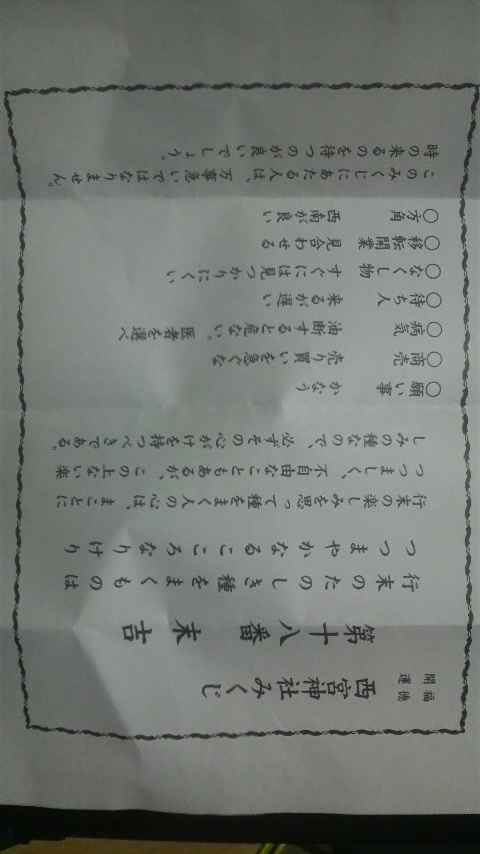 開運
福徳
西宮神社みくじ
第十八番 末吉
行末のたのしき種をまくものは
つつまやかなるこころなりけり
行末の楽しみを思って種をまく人の心は、まことに
つつましく、不自由なこともあるが、この上ない楽
しみの種なので、必ずその心がけを持つべきである。
○願い事 かなう
○商売 売り買いを急ぐな
○病気 油断すると危ない。医者を選べ
○待ち人 来るが遅い
○なくし物 すぐには見つかりにくい
○移転開業 見合わせる
○方角 西南が良い
このみくじにあたる人は、万事急いではなりません。
時の来るのを待つのが良いでしょう。